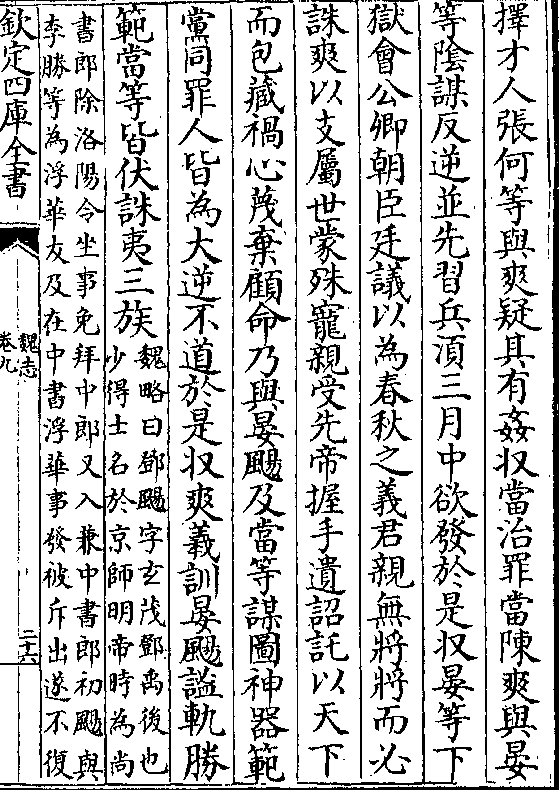 擇才人張何等與爽疑其有姦収當治罪當陳爽與晏
等陰謀反逆並先習兵湏三月中欲發於是収晏等下
獄會公卿朝臣廷議以為春秋之義君親無將將而必
誅爽以支屬世蒙殊寵親受先帝握手遺詔託以天下
而包藏禍心蔑棄顧命乃與晏颺及當等謀圖神器範
黨同罪人皆為大逆不道於是収爽羲訓晏颺謐軌勝
範當等皆伏誅夷三族
魏略曰鄧颺字玄茂鄧禹後也
少得士名於京師明帝時為尚
書郎除洛陽令坐事免拜中郎又入兼中書郎初颺與
李勝等為浮華友及在中書浮華事發被斥出遂不復
欽定四庫全書
魏志
卷九
二十六